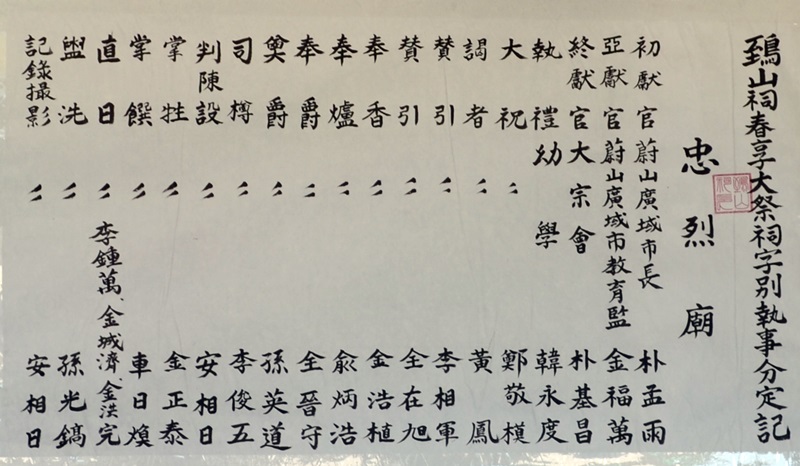 鵄山祠春享大祭祠字別執事分定記
忠烈廟
初獻官蔚山廣域市長 朴孟雨
亞獻官蔚山廣域市教育監 金福萬
終獻官大宗會 朴基昌
執禮幼學 韓永度
大祝〃 鄭敬模
謁者〃 黃鳳
贊引〃 李相軍
贊引〃 全在旭
奉香〃 金浩植
奉爐〃 兪炳浩
奉爵〃 全晉守
奠爵〃 孫英道
司樽〃 李俊五
判陳設〃 安相日
掌牲〃 金正泰
掌饌〃 車日煥
直日〃 李鍾萬、金城濟、金洪完
盥洗〃 孫光鎬
記錄撮影〃 安相日